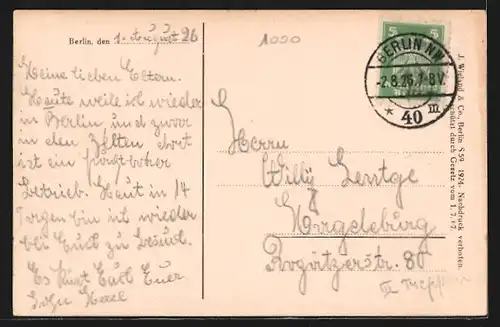 Berlin, den 1. August 26
1090
Meine lieben Eltern.
Heute weile ich wieder
in Berlin und zwar
in den Zelten dort
ist ein
Betrieb. Heut in 14
Tagen bin ich wieder
bei Euch zu Besuch.
Es küsst Euch Euer
Sohn
5
BERLIN NW
-2.8.26.7-8V.
* 40 III
Herrn
Willy
Magdeburg
Rogätzerstr. 80
III
J. Wieland & Co., Berlin S 59. 1924. Nachdruck verboten.
durch Gesetz vom